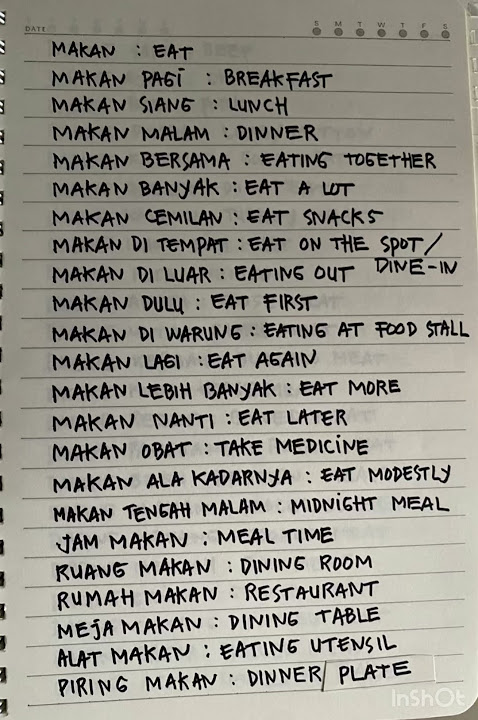 DATE S M T W T F S
MAKAN : EAT
MAKAN PAGI : BREAKFAST
MAKAN SIANG : LUNCH
MAKAN MALAM : DINNER
MAKAN BERSAMA : EATING TOGETHER
MAKAN BANYAK : EAT A LOT
MAKAN CEMILAN : EAT SNACKS
MAKAN DI TEMPAT : EAT ON THE SPOT/
DINE-IN
MAKAN DI LUAR : EATING OUT
MAKAN DULU : EAT FIRST
MAKAN DI WARUNG : EATING AT FOOD STALL
MAKAN LAGI : EAT AGAIN
MAKAN LEBIH BANYAK : EAT MORE
MAKAN NANTI : EAT LATER
MAKAN OBAT : TAKE MEDICINE
MAKAN ALA KADARNYA : EAT MODESTLY
MAKAN TENGAH MALAM : MIDNIGHT MEAL
JAM MAKAN : MEAL TIME
RUANG MAKAN : DINING ROOM
RUMAH MAKAN : RESTAURANT
MEJA MAKAN : DINING TABLE
ALAT MAKAN : EATING UTENSIL
PIRING MAKAN : DINNER/ PLATE
InShOt